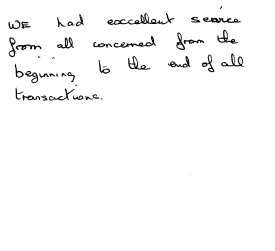 WE had exccellent service
from all concerned from the
beginning to the end of all
transactions.